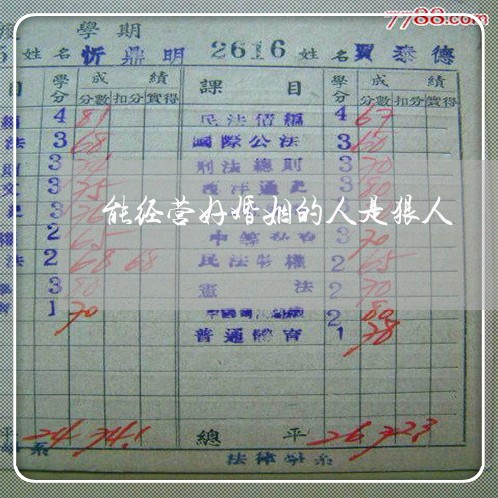 7788.com
學期
姓名 忻鼎明 2616 姓名 賈泰德
目 學分 成績 課目 學分 成績
分數 扣分 實得 分數 扣分 實得
4 81 民法債編 4 67
法 3 68 國際公法 3 60
3 刑法總則 3 70
文 3 75 西洋通史 3 80
能经营好婚姻的人是狠人
3 70
2 65
法 2 68 68 民法物權 2 65
3 80 憲法 2 70
1 70 2 80
普通體育 1 78
平 24 74.1 總平 26 72.3
系 法律學系